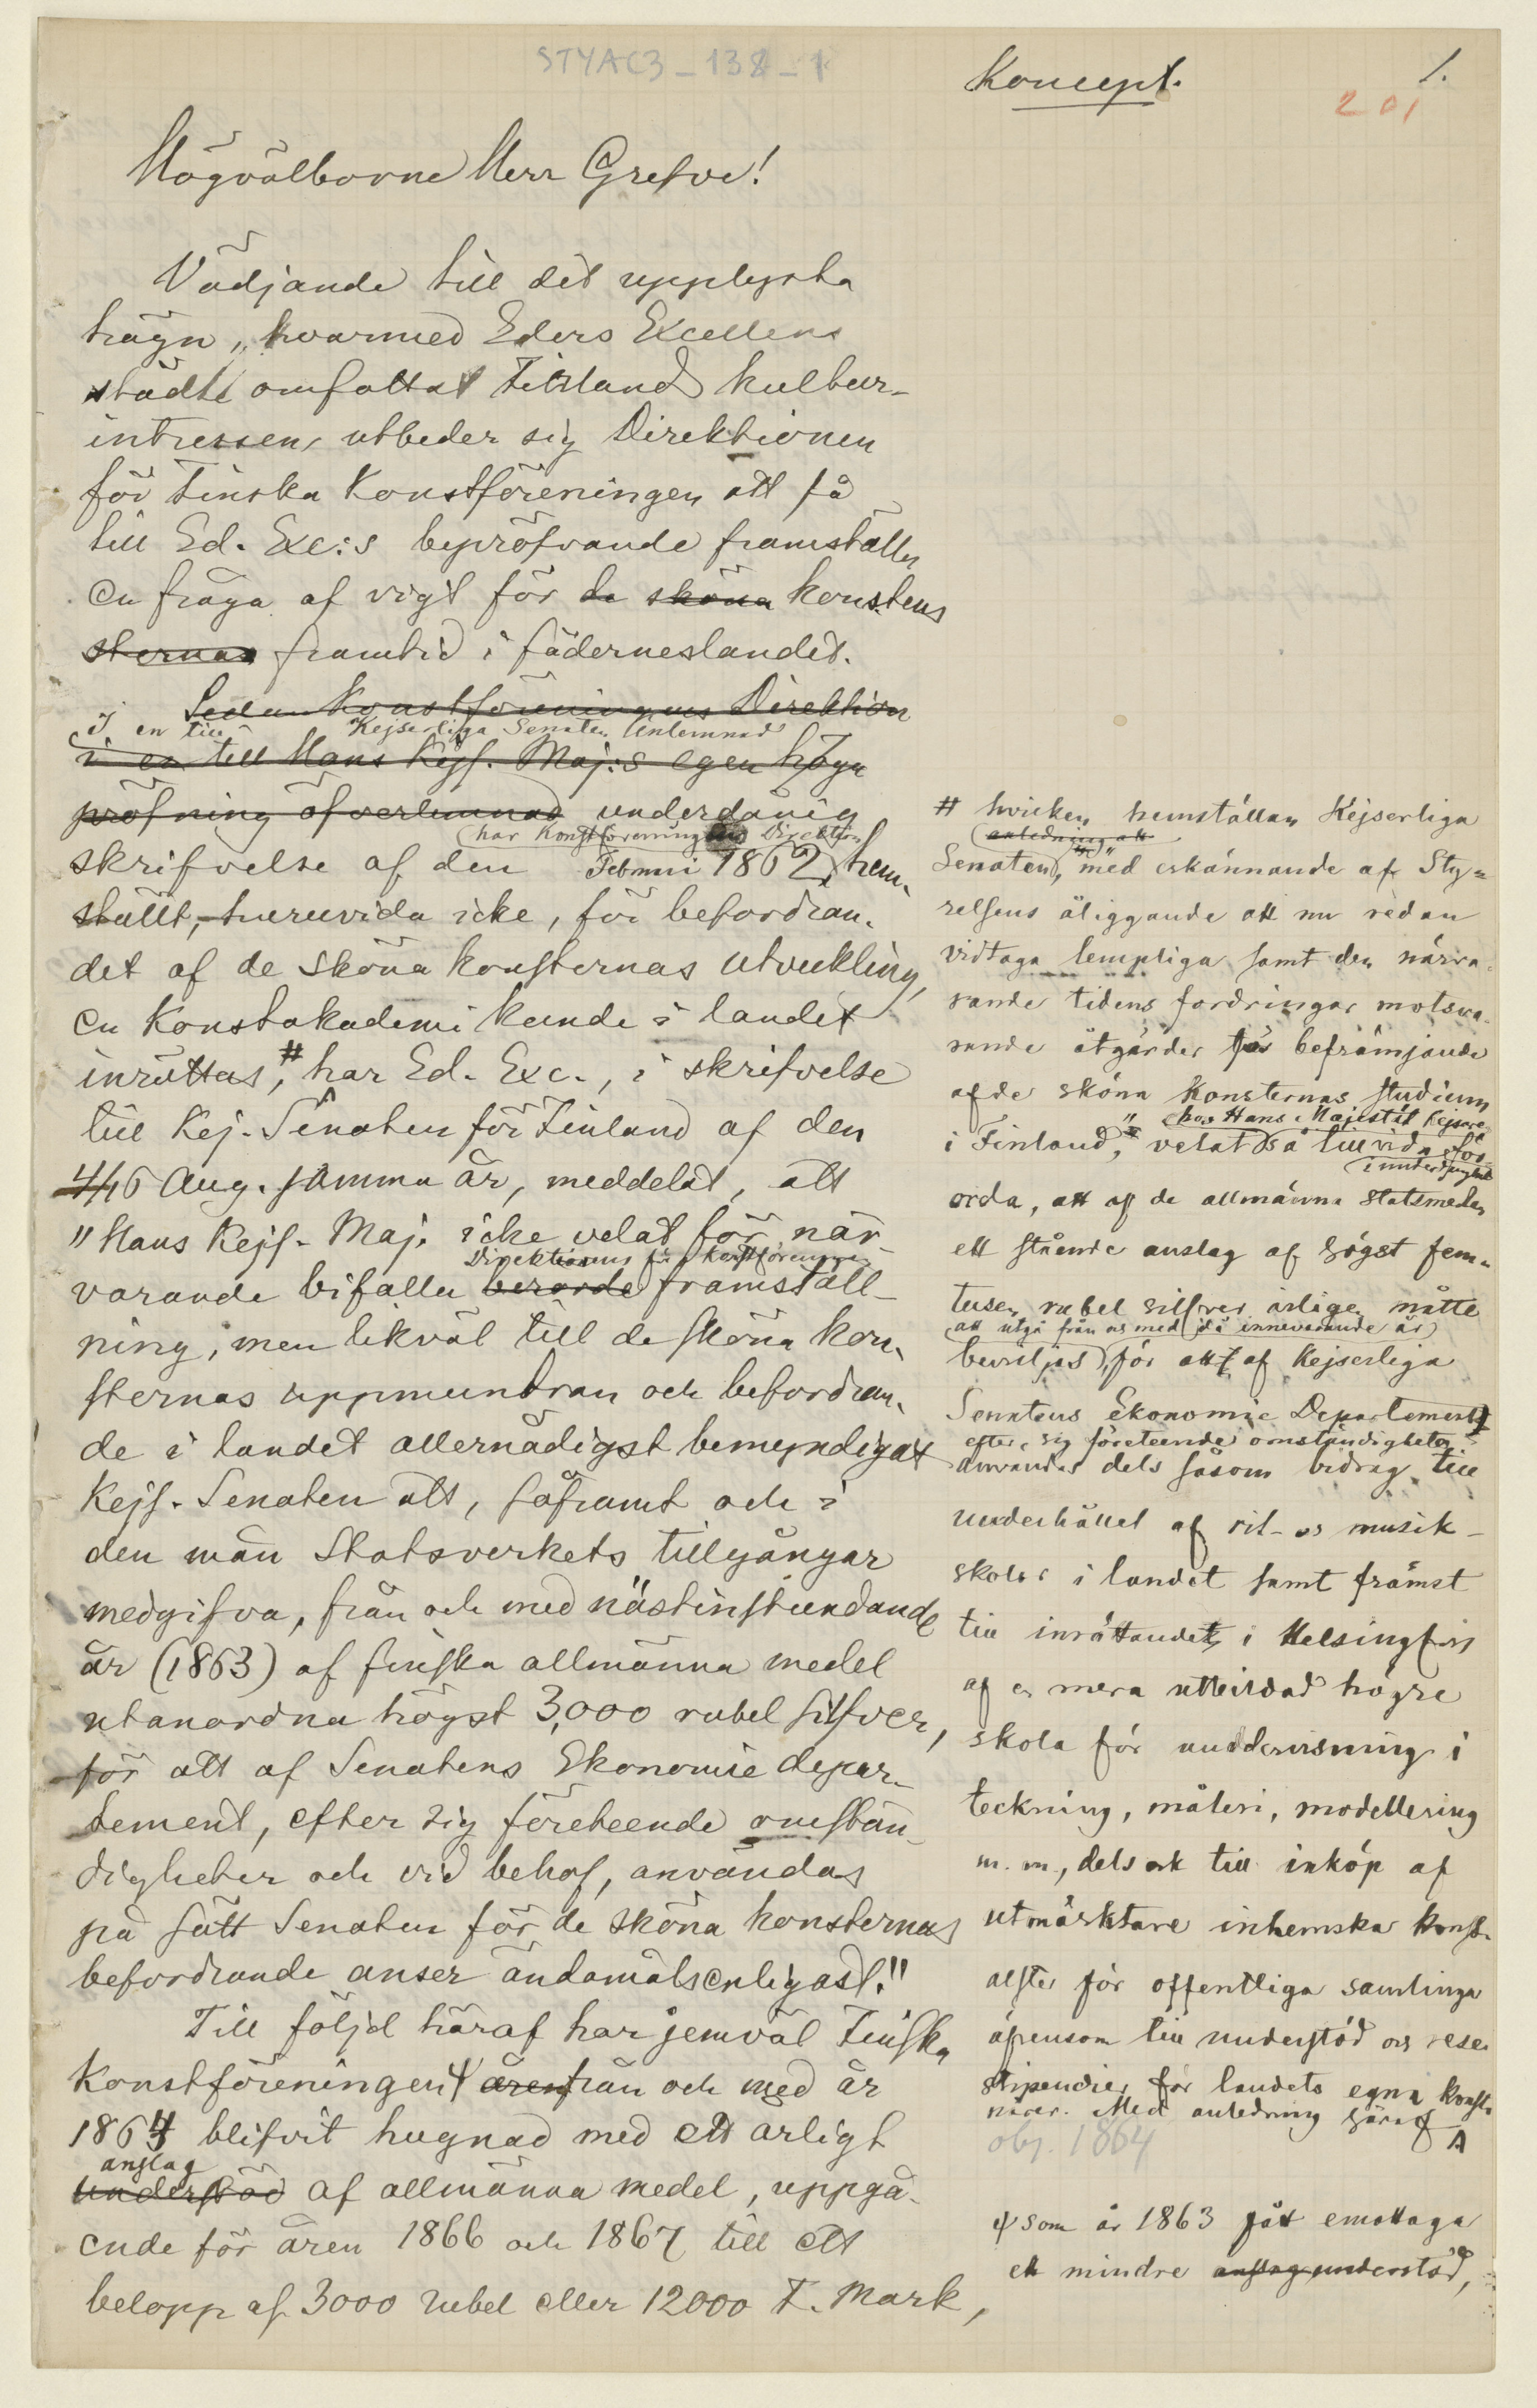 STYAC3_138_1
Koncept.
1.
201
Högvälborne Herr Grefve!
Vädjande till det upplysta
hägn, hvarmed Eders Excellens
städse omfattat Finland kultur-
intressen, utbeder sig Direktionen
för Finska Konstföreningen att få
till Ed. Exc:s bepröfvande framställa
en fråga af vigt för de sköna konstens
sternas framtid i fäderneslandet.
Sedan Konstföreningens Direktion
I en till Kejserliga Senaten Inlemnad
i en till Hans Kejs. Maj:s egen höga
pröfning öfverlemnad underdånig
har Konstföreningens Direktion
skrifvelse af den Februari 1862, hem-
ställt, huruvida icke, för befordran-
det af de sköna konsternas utveckling,
en Konstakademi kunde i landet
inrättas, # har Ed. Exc., i skrifvelse
till Kej. Senaten för Finland af den
4/16 Aug. samma år, meddelat, att
"Hans Kejs. Maj. icke velat för när-
Direktionens för Konstföreningen
varande bifalla berörde framställ-
ning, men likväl till de sköna kon-
sternas uppmuntran och befordran-
de i landet allernådigst bemyndigat
Kejs. Senaten att, såframt och i
den mån Statsverkets tillgångar
medgifva, från och med nästinstundande
år (1863) af finska allmänna medel
utanordna högst 3,000 rubel silfver,
för att af Senatens Ekonomie depar-
tement, efter sig företeende omstän-
digheter och vid behof, användas
på sätt Senaten för de sköna konsternas
befordrande anser ändamålsenligast."
Till följd häraf har jemväl Finska
Konstföreningen ψ åren från och med år
1864 blifvit hugnad med ett årligt
anslag
understöd af allmänna medel, uppgå-
ende för åren 1866 och 1867 till ett
belopp af 3000 rubel eller 12000 F. Mark,
# hvilken hemställan Kejserliga
anledning att
Senaten, "med erkännande af Sty-
relsens åliggande att nu redan
vidtaga lempliga samt den närva-
rande tidens fordringar motsva-
rande åtgärder för befrämjande
af de sköna konsternas studium
hos Hans Majestät Kejsaren
i Finland," velat så tillvida för-
i underdånighet
orda, att af de allmänna statsmedlen
ett stående anslag af högst fem-
tusen rubel silfver årligen måtte
att utgå från och med då innevarande år
beviljas, för att af Kejserliga
Senatens Ekonomie Departement
efter sig företeende omständigheter
användas dels såsom bidrag till
underhållet af rit- och musik-
skolor i landet samt främst
till inrättandet i Helsingfors
af en mera utbildad högre
skola för undervisning i
teckning, måleri, modellering
m. m., dels ock till inköp af
utmärktare inhemska konst-
alster för offentliga samlingar
äfvensom till understöd och rese-
stipendier för landets egna konst-
närer. Med anledning häraf
obj. 1864
ψ som år 1863 fått emottaga
ett mindre anslag understöd,